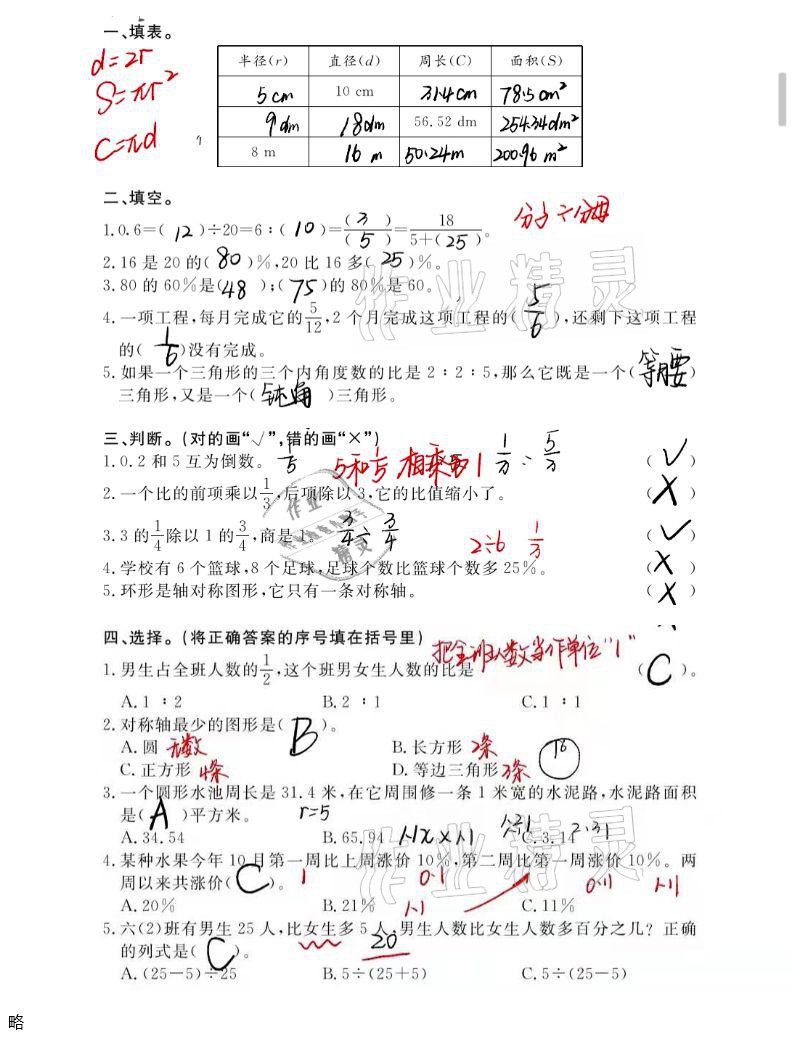 一、填表。
d=2r
S=πr²
C=πd
半径(r) 直径(d) 周长(C) 面积(S)
5cm 10 cm 31.4cm 78.5cm²
9dm 18dm 56.52 dm 254.34dm²
8 m 16 m 50.24m 200.96 m²
二、填空。
分子÷分母
1.0.6=( 12 )÷20=6∶( 10 )=(3)/(5)=18/5+(25)。
2.16 是 20 的( 80 )%,20 比 16 多( 25 )%。
3.80 的 60%是( 48 );( 75 )的 80%是 60。
4.一项工程,每月完成它的5/12,2 个月完成这项工程的( 5/6 ),还剩下这项工程
的( 1/6 )没有完成。
5.如果一个三角形的三个内角度数的比是 2∶2∶5,那么它既是一个( 等腰 )
三角形,又是一个( 钝角 )三角形。
三、判断。(对的画“√”,错的画“×”)
1.0.2 和 5 互为倒数。 1/5 5和1/5 相乘得1 1/3 : 5/3 ( √ )
2.一个比的前项乘以1/3,后项除以 3,它的比值缩小了。 ( X )
3.3 的1/4除以 1 的3/4,商是 1。 3/4÷3/4 2÷6 1/3 ( √ )
4.学校有 6 个篮球,8 个足球,足球个数比篮球个数多 25%。 ( X )
5.环形是轴对称图形,它只有一条对称轴。 ( X )
四、选择。(将正确答案的序号填在括号里)
把全班人数当作单位“1”
1.男生占全班人数的1/2,这个班男女生人数的比是 ( C )。
A.1∶2 B.2∶1 C.1∶1
2.对称轴最少的图形是( B )。
A.圆 无数 B.长方形 2条 16
C.正方形 4条 D.等边三角形 3条
3.一个圆形水池周长是 31.4 米,在它周围修一条 1 米宽的水泥路,水泥路面积
是( A )平方米。 r=5
A.34.54 B.65.94 C.3.14
4.某种水果今年 10 月第一周比上周涨价 10%,第二周比第一周涨价 10%。两
周以来共涨价( C )。 1 0.1 0.11
A.20% B.21% 1.1 C.11%
5.六(2)班有男生 25 人,比女生多 5 人,男生人数比女生人数多百分之几?正确
的列式是( C )。 20
A.(25-5)÷25 B.5÷(25+5) C.5÷(25-5)
作业精灵
作业精灵
作业
精灵
略